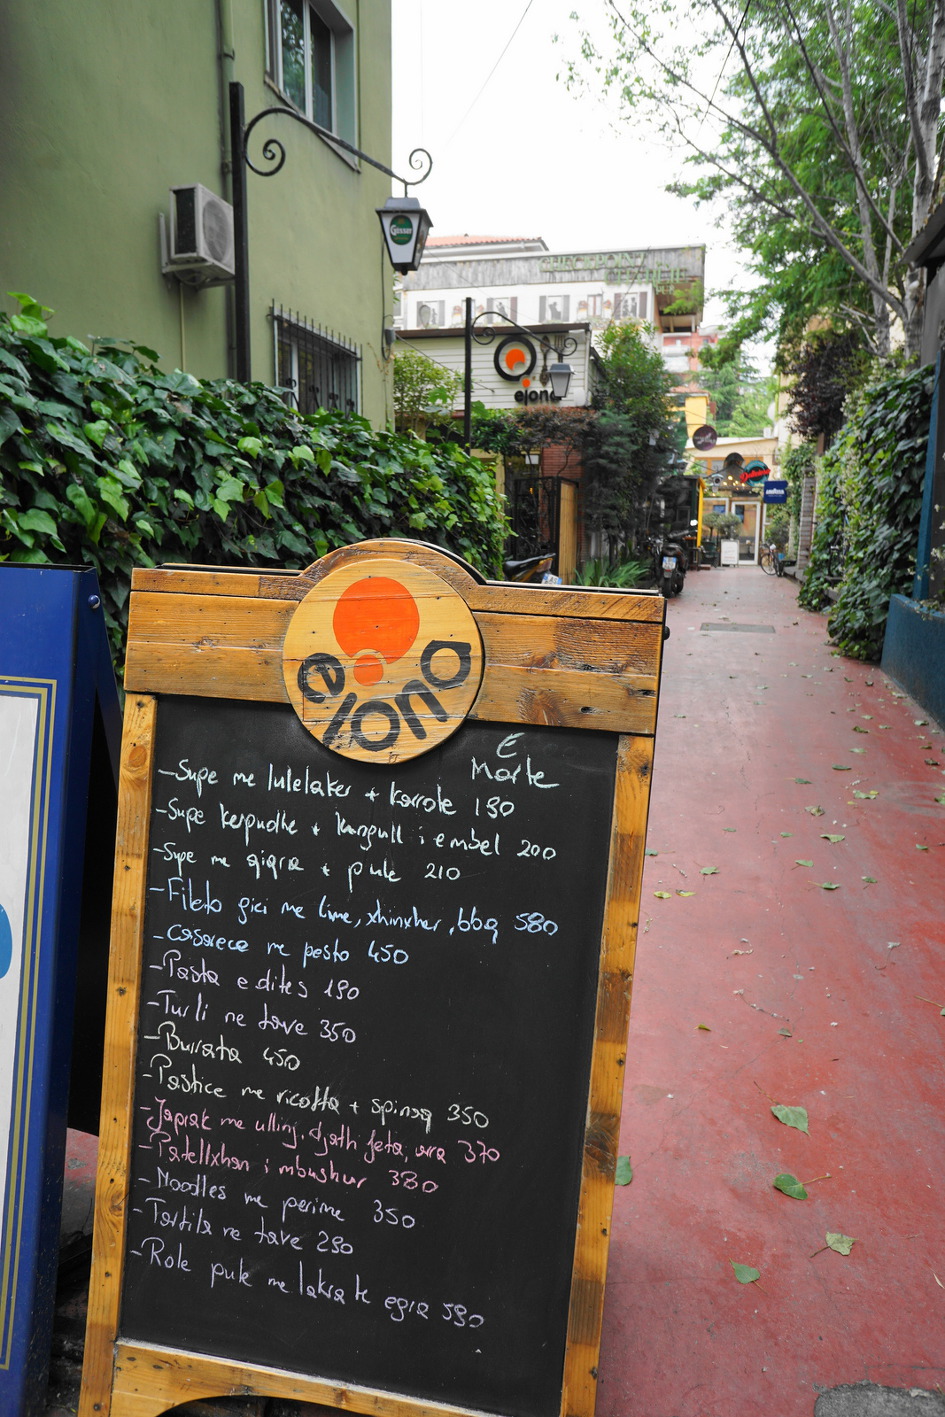 Gösser
ejona
ejona
E
Marte
-Supe me lulelaker + karrote 190
-Supe kerpudhe + kungull i embel 200
-Supe me qiqra + pule 210
-Fileto gici me lime, xhinxher, bbq 580
-Casarece me pesto 450
-Pasta e dites 190
-Turli ne tave 350
-Burrata 450
-Pastice me ricotta + spinaq 350
-Japrak me ullinj, djath feta, arra 370
-Patellxhan i mbushur 380
-Noodles me perime 350
-Tortila ne tave 290
-Role pule me lakra te egra 590